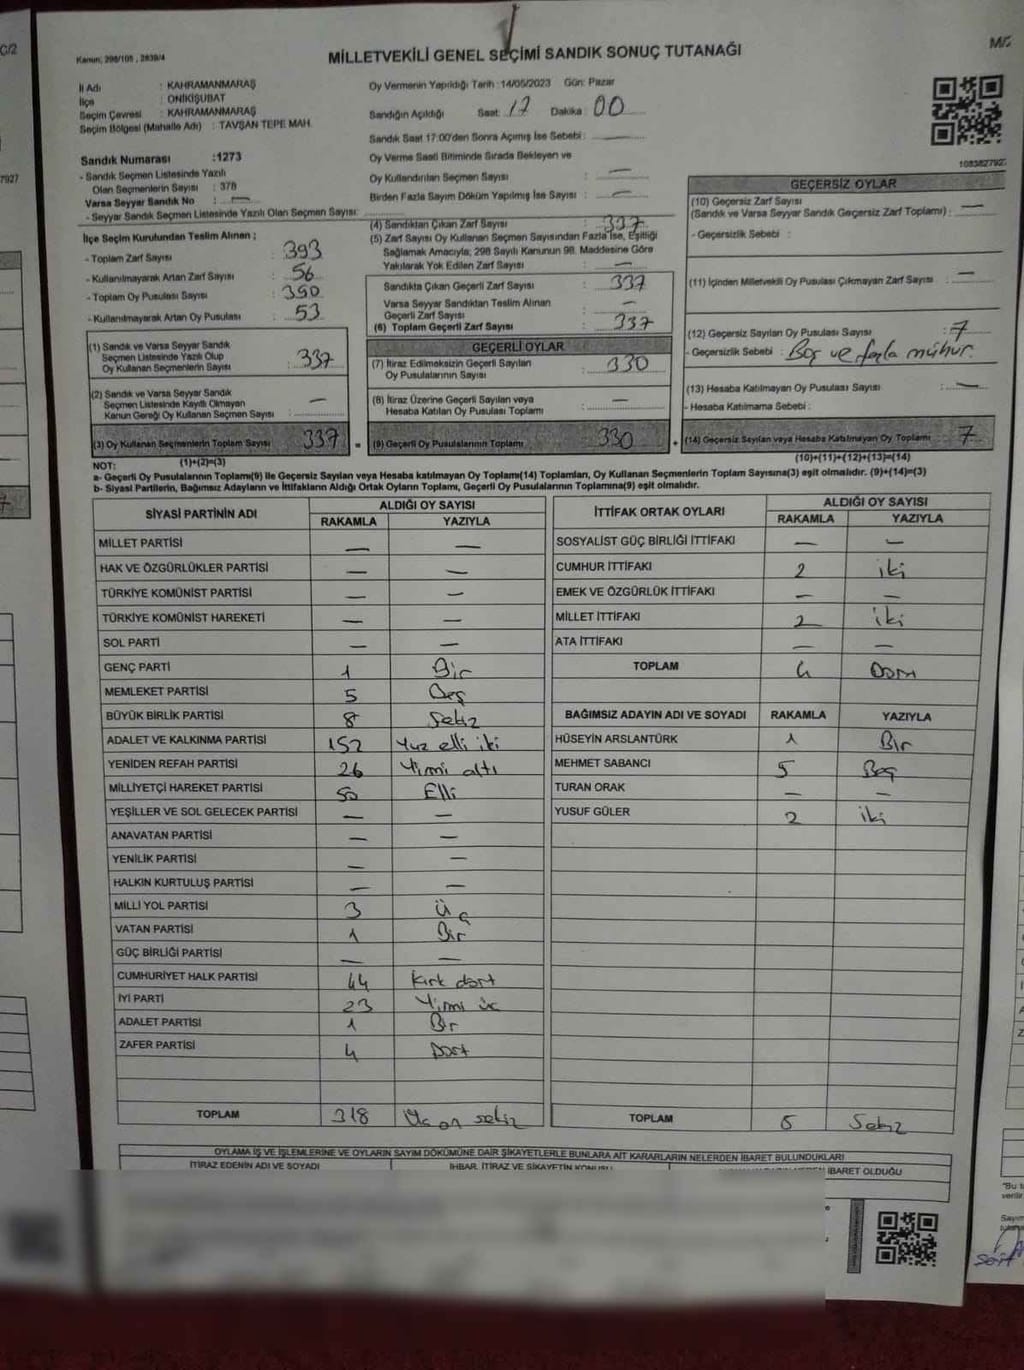 Kanun; 298/105 , 2839/4
MİLLETVEKİLİ GENEL SEÇİMİ SANDIK SONUÇ TUTANAĞI
İl Adı : KAHRAMANMARAŞ
İlçe : ONİKİŞUBAT
Seçim Çevresi : KAHRAMANMARAŞ
Seçim Bölgesi (Mahalle Adı) : TAVŞAN TEPE MAH.
Sandık Numarası :1273
- Sandık Seçmen Listesinde Yazılı
Olan Seçmenlerin Sayısı : 378
Varsa Seyyar Sandık No : —
- Seyyar Sandık Seçmen Listesinde Yazılı Olan Seçmen Sayısı:
Oy Vermenin Yapıldığı Tarih :14/05/2023 Gün: Pazar
Sandığın Açıldığı Saat: 17 Dakika: 00
Sandık Saat 17:00'den Sonra Açılmış İse Sebebi : —
Oy Verme Saati Bitiminde Sırada Bekleyen ve
Oy Kullandırılan Seçmen Sayısı : —
Birden Fazla Sayım Döküm Yapılmış İse Sayısı : —
108382792
İlçe Seçim Kurulundan Teslim Alınan ;
- Toplam Zarf Sayısı : 393
- Kullanılmayarak Artan Zarf Sayısı : 56
- Toplam Oy Pusulası Sayısı : 390
- Kullanılmayarak Artan Oy Pusulası : 53
(1) Sandık ve Varsa Seyyar Sandık
Seçmen Listesinde Yazılı Olup
Oy Kullanan Seçmenlerin Sayısı : 337
(2) Sandık ve Varsa Seyyar Sandık
Seçmen Listesinde Kayıtlı Olmayan
Kanun Gereği Oy Kullanan Seçmen Sayısı : —
(3) Oy Kullanan Seçmenlerin Toplam Sayısı 337
(1)+(2)=(3)
(4) Sandıktan Çıkan Zarf Sayısı : 337
(5) Zarf Sayısı Oy Kullanan Seçmen Sayısından Fazla İse, Eşitliği
Sağlamak Amacıyla; 298 Sayılı Kanunun 98. Maddesine Göre
Yakılarak Yok Edilen Zarf Sayısı : —
Sandıkta Çıkan Geçerli Zarf Sayısı : 337
Varsa Seyyar Sandıktan Teslim Alınan
Geçerli Zarf Sayısı : —
(6) Toplam Geçerli Zarf Sayısı : 337
GEÇERLİ OYLAR
(7) İtiraz Edilmeksizin Geçerli Sayılan
Oy Pusulalarının Sayısı : 330
(8) İtiraz Üzerine Geçerli Sayılan veya
Hesaba Katılan Oy Pusulası Toplamı : —
= (9) Geçerli Oy Pusulalarının Toplamı 330
GEÇERSİZ OYLAR
(10) Geçersiz Zarf Sayısı
(Sandık ve Varsa Seyyar Sandık Geçersiz Zarf Toplamı) : —
- Geçersizlik Sebebi :
(11) İçinden Milletvekili Oy Pusulası Çıkmayan Zarf Sayısı : —
(12) Geçersiz Sayılan Oy Pusulası Sayısı : 7
- Geçersizlik Sebebi : Boş ve fazla mühür.
(13) Hesaba Katılmayan Oy Pusulası Sayısı : —
- Hesaba Katılmama Sebebi :
+ (14) Geçersiz Sayılan veya Hesaba Katılmayan Oy Toplamı 7
(10)+(11)+(12)+(13)=(14)
NOT:
a- Geçerli Oy Pusulalarının Toplamı(9) ile Geçersiz Sayılan veya Hesaba katılmayan Oy Toplamı(14) Toplamları, Oy Kullanan Seçmenlerin Toplam Sayısına(3) eşit olmalıdır. (9)+(14)=(3)
b- Siyasi Partilerin, Bağımsız Adayların ve İttifakların Aldığı Ortak Oyların Toplamı, Geçerli Oy Pusulalarının Toplamına(9) eşit olmalıdır.
SİYASİ PARTİNİN ADI ALDIĞI OY SAYISI
RAKAMLA YAZIYLA
MİLLET PARTİSİ — —
HAK VE ÖZGÜRLÜKLER PARTİSİ — —
TÜRKİYE KOMÜNİST PARTİSİ — —
TÜRKİYE KOMÜNİST HAREKETİ — —
SOL PARTİ — —
GENÇ PARTİ 1 Bir
MEMLEKET PARTİSİ 5 Beş
BÜYÜK BİRLİK PARTİSİ 8 Sekiz
ADALET VE KALKINMA PARTİSİ 152 Yüz elli iki
YENİDEN REFAH PARTİSİ 26 Yirmi altı
MİLLİYETÇİ HAREKET PARTİSİ 50 Elli
YEŞİLLER VE SOL GELECEK PARTİSİ — —
ANAVATAN PARTİSİ — —
YENİLİK PARTİSİ — —
HALKIN KURTULUŞ PARTİSİ — —
MİLLİ YOL PARTİSİ 3 Üç
VATAN PARTİSİ 1 Bir
GÜÇ BİRLİĞİ PARTİSİ — —
CUMHURİYET HALK PARTİSİ 44 Kırk dört
İYİ PARTİ 23 Yirmi üç
ADALET PARTİSİ 1 Bir
ZAFER PARTİSİ 4 Dört
TOPLAM 318 Üç on sekiz
İTTİFAK ORTAK OYLARI ALDIĞI OY SAYISI
RAKAMLA YAZIYLA
SOSYALİST GÜÇ BİRLİĞİ İTTİFAKI — —
CUMHUR İTTİFAKI 2 iki
EMEK VE ÖZGÜRLÜK İTTİFAKI — —
MİLLET İTTİFAKI 2 iki
ATA İTTİFAKI — —
TOPLAM 4 Dört
BAĞIMSIZ ADAYIN ADI VE SOYADI RAKAMLA YAZIYLA
HÜSEYİN ARSLANTÜRK 1 Bir
MEHMET SABANCI 5 Beş
TURAN ORAK — —
YUSUF GÜLER 2 iki
TOPLAM 8 Sekiz
OYLAMA İŞ VE İŞLEMLERİNE VE OYLARIN SAYIM DÖKÜMÜNE DAİR ŞİKAYETLERLE BUNLARA AİT KARARLARIN NELERDEN İBARET BULUNDUKLARI
İTİRAZ EDENİN ADI VE SOYADI İHBAR, İTİRAZ VE ŞİKAYETİN KONUSU İBARET OLDUĞU